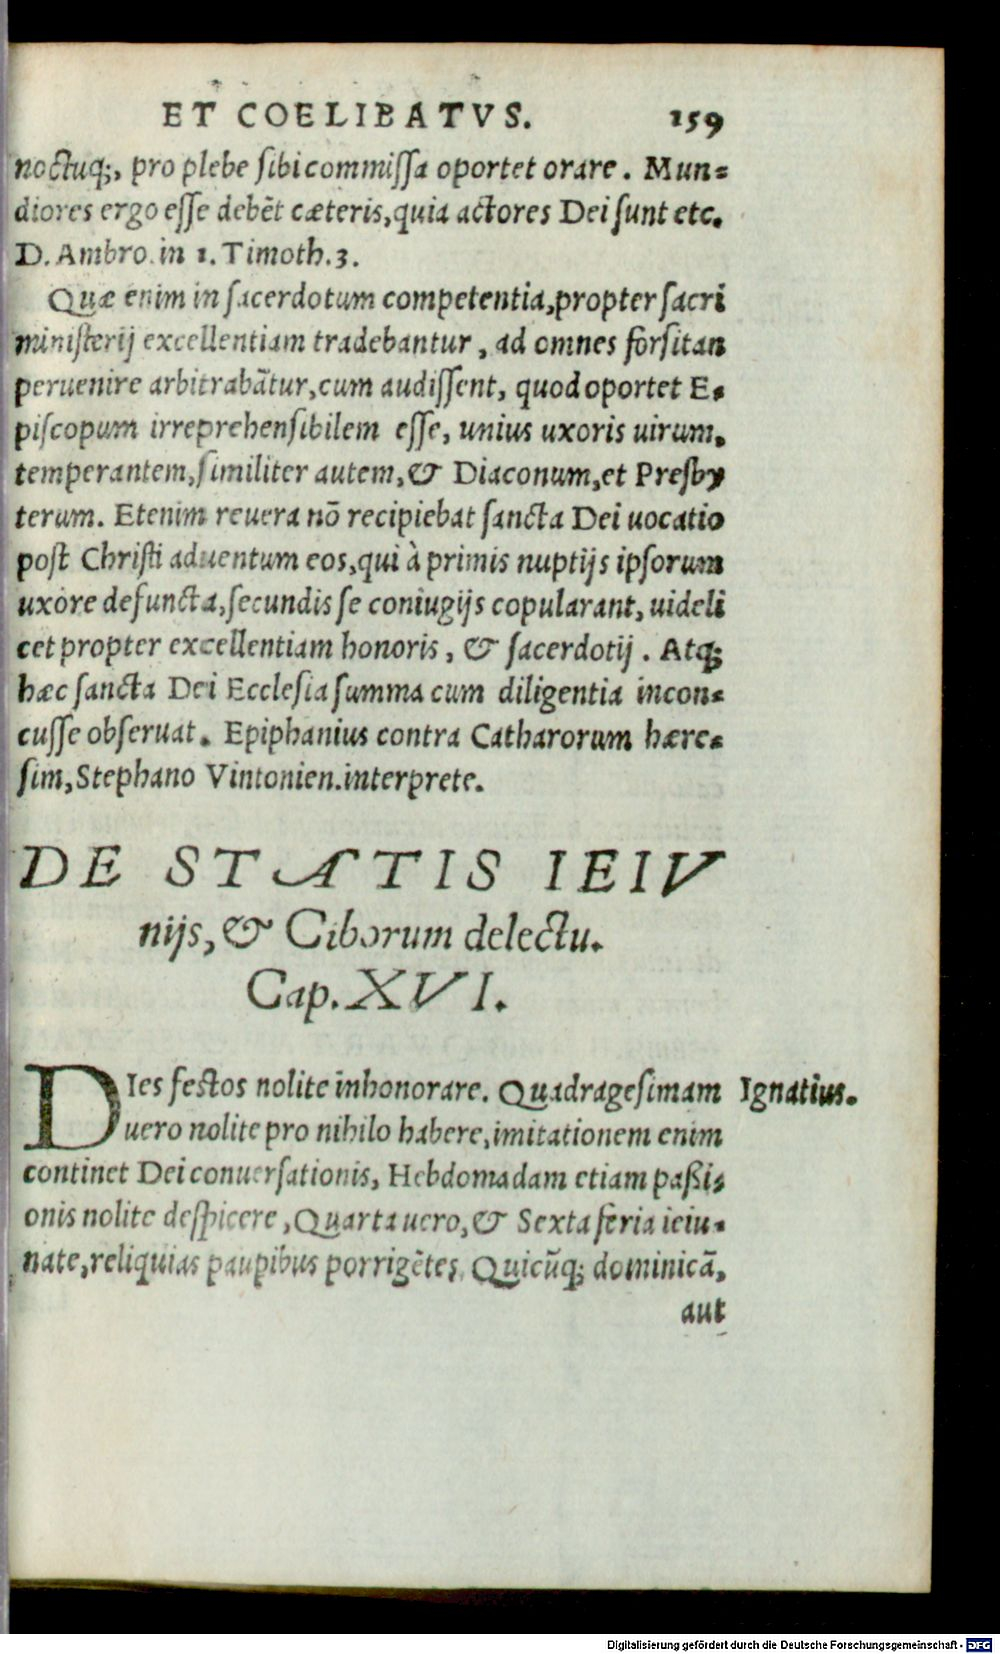 ET COELIBATVS. 159
noctuq;, pro plebe sibi commissa oportet orare. Mun-
diores ergo esse debẽt cæteris, quia actores Dei sunt etc.
D. Ambro. in 1. Timoth. 3.
Quæ enim in sacerdotum competentia, propter sacri
ministerij excellentiam tradebantur, ad omnes forsitan
peruenire arbitrabãtur, cum audissent, quod oportet E-
piscopum irreprehensibilem esse, unius uxoris uirum.
temperantem, similiter autem, & Diaconum, et Presby
terum. Etenim reuera nõ recipiebat sancta Dei uocatio
post Christi aduentum eos, qui à primis nuptijs ipsorum
uxore defuncta, secundis se coniugijs copularant, uideli
cet propter excellentiam honoris, & sacerdotij. Atq;
hæc sancta Dei Ecclesia summa cum diligentia incon-
cusse obseruat. Epiphanius contra Catharorum hære-
sim, Stephano Vintonien. interprete.
DE STATIS IEIV
nijs, & Ciborum delectu.
Cap. XVI.
DIes festos nolite inhonorare. Quadragesimam
uero nolite pro nihilo habere, imitationem enim
continet Dei conuersationis, Hebdomadam etiam paßi-
onis nolite despicere, Quarta uero, & Sexta feria ieiu-
nate, reliquias paupibus porrigẽtes, Quicũq; dominicã,
aut
Ignatius.
Digitalisierung gefördert durch die Deutsche Forschungsgemeinschaft - DFG